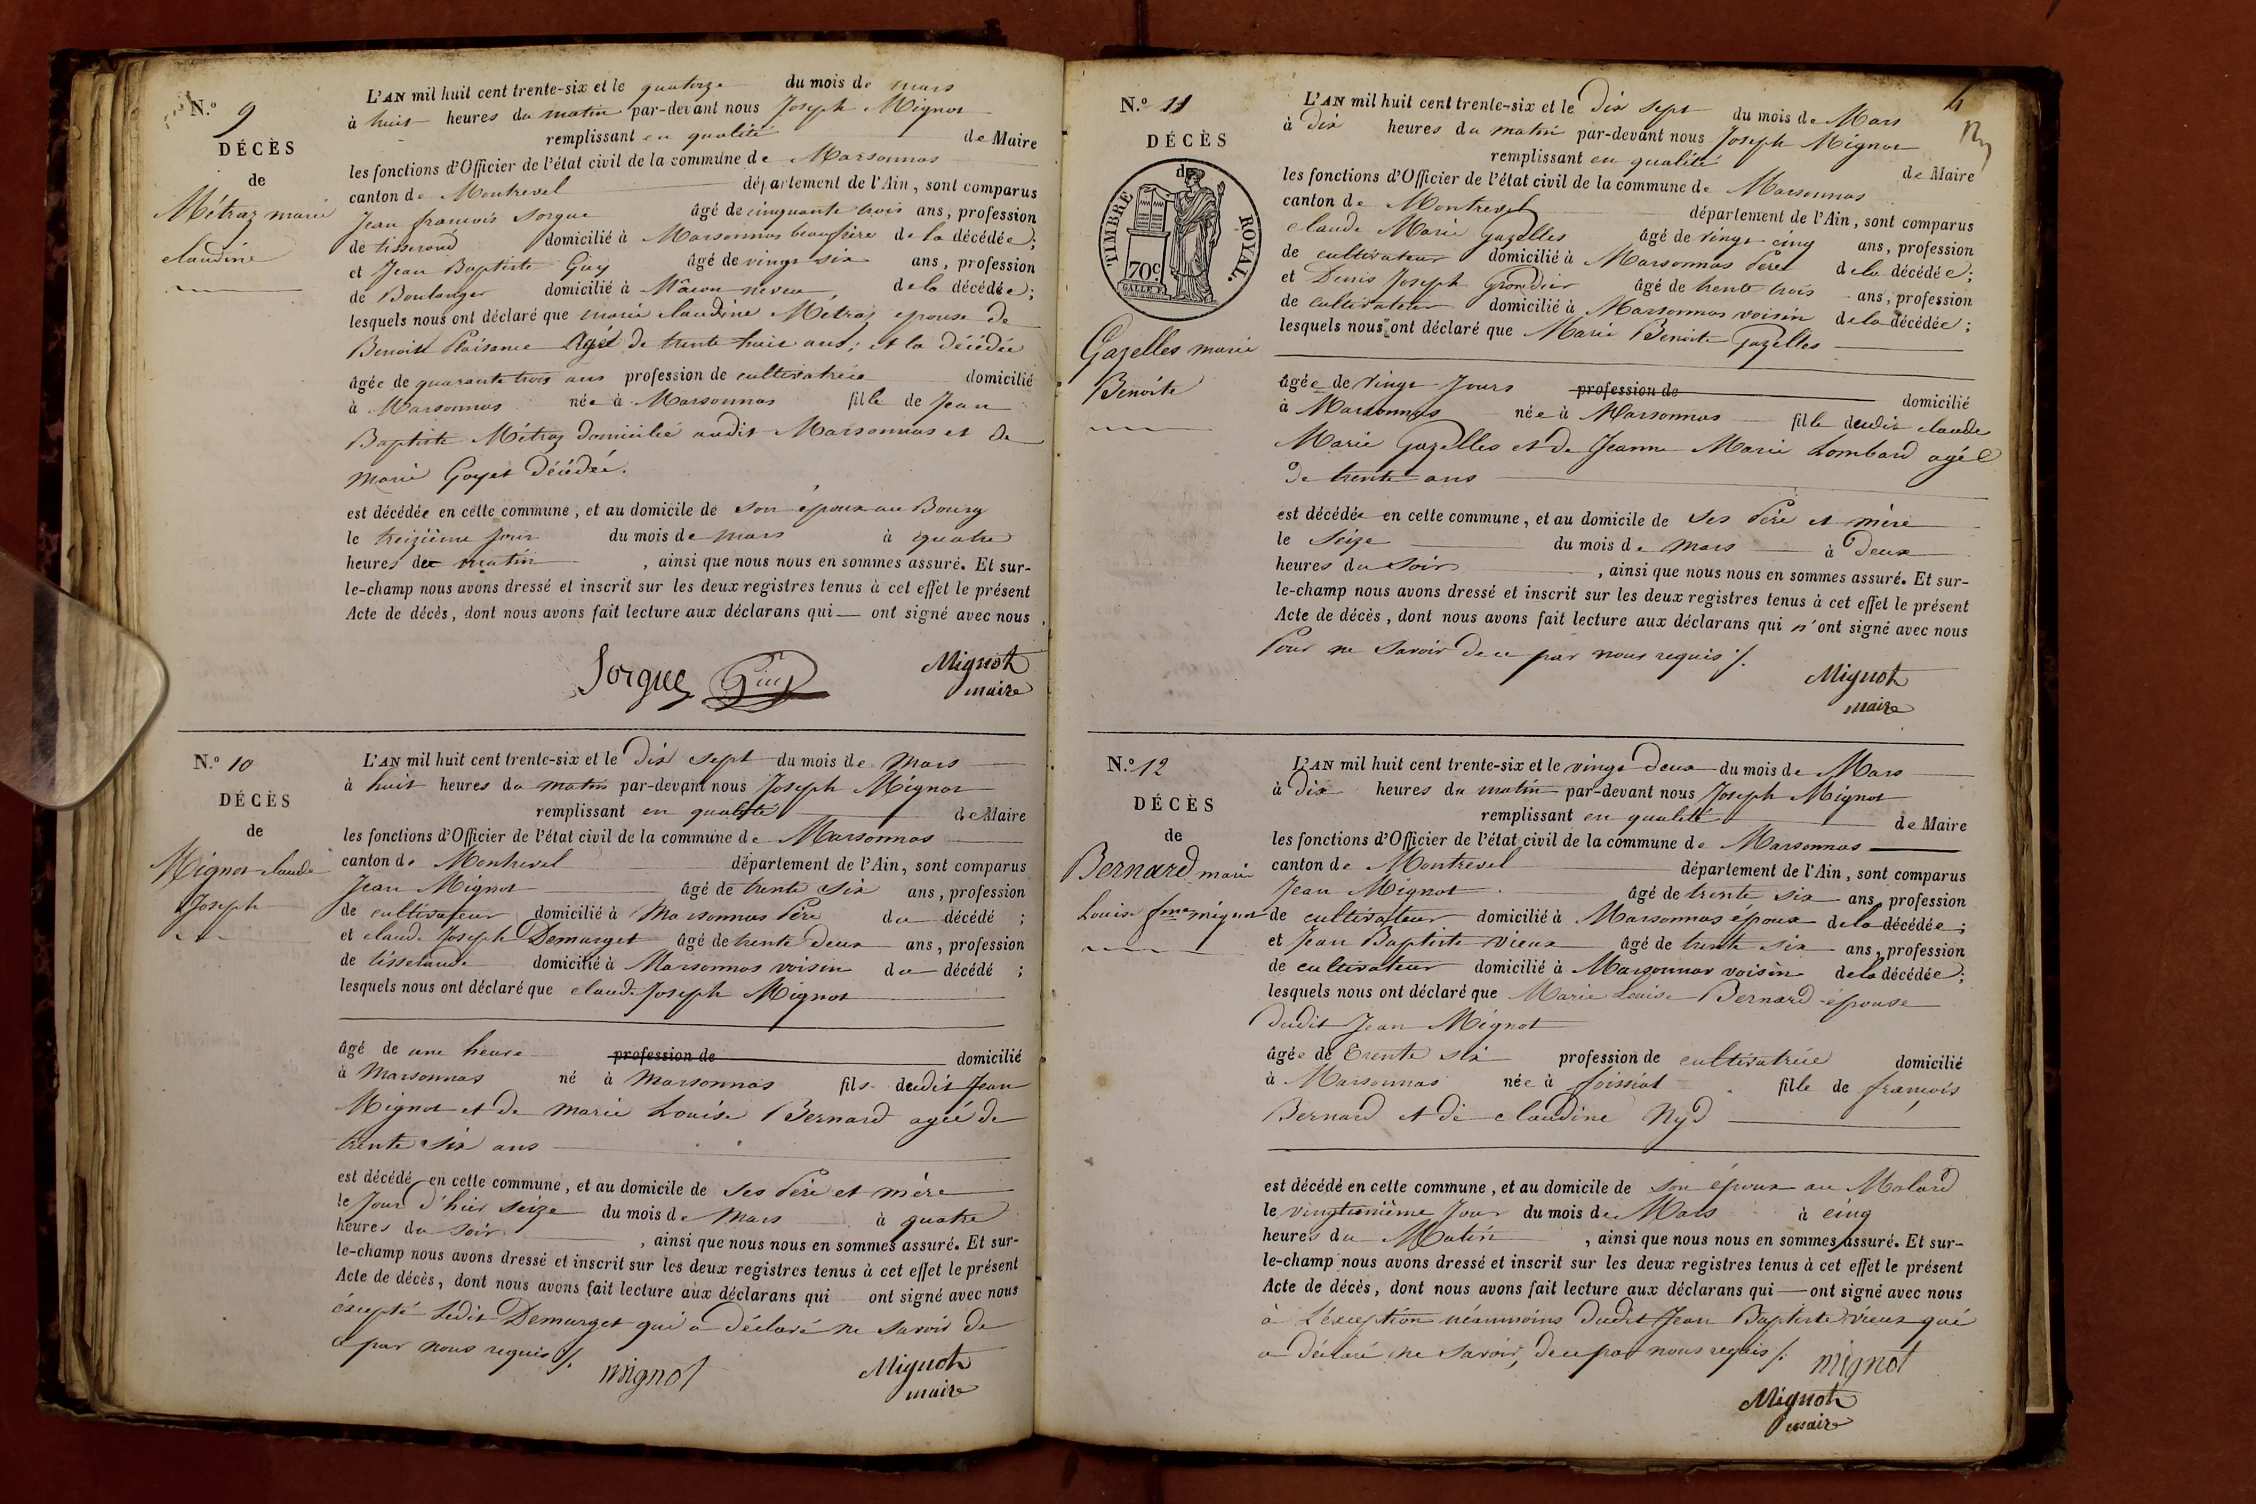 N.º 9
DÉCÈS
de
Métraz marie
claudine
L'AN mil huit cent trente-six et le quatorze du mois de mars
à huit heures du matin par-devant nous Joseph Mignot
remplissant en qualité de Maire
les fonctions d'Officier de l'état civil de la commune de Marsonnas
canton de Montrevel département de l'Ain, sont comparus
Jean françois Sorgue âgé de cinquante trois ans, profession
de tisserand domicilié à Marsonnas beaufrère de la décédée;
et Jean Baptiste Guy âgé de vingt six ans, profession
de Boulanger domicilié à Mâcon neveu de la décédée;
lesquels nous ont déclaré que marie claudine Métraz epouse de
Benoit Plaisance Agé de trente huit ans; et la décédée
âgée de quarante trois ans profession de cultivatrice domicilié
à Marsonnas née à Marsonnas fille de Jean
Baptiste Métraz domicilié audit Marsonnas et de
marie Goyet décédée.
est décédée en cette commune, et au domicile de son époux au Bourg
le treizième jour du mois de mars à quatre
heures du matin, ainsi que nous nous en sommes assuré. Et sur-
le-champ nous avons dressé et inscrit sur les deux registres tenus à cet effet le présent
Acte de décès, dont nous avons fait lecture aux déclarans qui — ont signé avec nous
Sorgue Guy Mignot
maire
N.º 10
DÉCÈS
de
Mignot claude
Joseph
L'AN mil huit cent trente-six et le dix sept du mois de mars
à huit heures du matin par-devant nous Joseph Mignot
remplissant en qualité de Maire
les fonctions d'Officier de l'état civil de la commune de Marsonnas
canton de Montrevel département de l'Ain, sont comparus
Jean Mignot âgé de trente six ans, profession
de cultivateur domicilié à Marsonnas Père du décédé;
et claude Joseph Demurget âgé de trente deux ans, profession
de domicilié à Marsonnas voisin du décédé;
lesquels nous ont déclaré que claude Joseph Mignot
âgé de une heure profession de domicilié
à Marsonnas né à Marsonnas fils dudit Jean
Mignot et de marie Louise Bernard agée de
trente six ans
est décédé en cette commune, et au domicile de ses Père et mère
le Jour d'hier seize du mois de mars à quatre
heures du soir, ainsi que nous nous en sommes assuré. Et sur-
le-champ nous avons dressé et inscrit sur les deux registres tenus à cet effet le présent
Acte de décès, dont nous avons fait lecture aux déclarans qui ont signé avec nous
éxcepté ledit Demurget qui a déclaré ne savoir de
ce par nous requis /.
mignot Mignot
maire
4
N.º 11
DÉCÈS
de
TIMBRE ROYAL.
70c
GALLE F.
Gazelles marie
Benoite
L'AN mil huit cent trente-six et le dix sept du mois de Mars
à dix heures du matin par-devant nous Joseph Mignot
remplissant en qualité de Maire
les fonctions d'Officier de l'état civil de la commune de Marsonnas
canton de Montrevel département de l'Ain, sont comparus
claude Marie Gazelles âgé de vingt cinq ans, profession
de cultivateur domicilié à Marsonnas Père de la décédée;
et Denis Joseph âgé de trente trois ans, profession
de cultivateur domicilié à Marsonnas voisin de la décédée;
lesquels nous ont déclaré que Marie Benoite Gazelles
âgée de vingt Jours profession de domicilié
à Marsonnas née à Marsonnas fille dudit claude
Marie Gazelles et de Jeanne Marie Lombard agée
de trente ans
est décédée en cette commune, et au domicile de ses Père et mère
le seize du mois de mars à deux
heures du soir, ainsi que nous nous en sommes assuré. Et sur-
le-champ nous avons dressé et inscrit sur les deux registres tenus à cet effet le présent
Acte de décès, dont nous avons fait lecture aux déclarans qui n'ont signé avec nous
Pour ne savoir de ce par nous requis /.
Mignot
maire
N.º 12
DÉCÈS
de
Bernard marie
Louise fme mignot
L'AN mil huit cent trente-six et le vingt deux du mois de Mars
à dix heures du matin par-devant nous Joseph Mignot
remplissant en qualité de Maire
les fonctions d'Officier de l'état civil de la commune de Marsonnas
canton de Montrevel département de l'Ain, sont comparus
Jean Mignot âgé de trente six ans, profession
de cultivateur domicilié à Marsonnas époux de la décédée;
et Jean Baptiste vieux âgé de trente six ans, profession
de cultivateur domicilié à Marsonnas voisin de la décédée;
lesquels nous ont déclaré que Marie Louise Bernard épouse
dudit Jean Mignot
âgée de trente six profession de cultivatrice domicilié
à Marsonnas née à foissiat fille de françois
Bernard et de claudine Nyd
est décédé en cette commune, et au domicile de son époux au Molard
le vingtunième Jour du mois de Mars à cinq
heures du Matin, ainsi que nous nous en sommes assuré. Et sur-
le-champ nous avons dressé et inscrit sur les deux registres tenus à cet effet le présent
Acte de décès, dont nous avons fait lecture aux déclarans qui — ont signé avec nous
à L'éxception néanmoins dudit Jean Baptiste vieux qui
a déclaré ne savoir, de ce par nous requis /. mignot
Mignot
maire